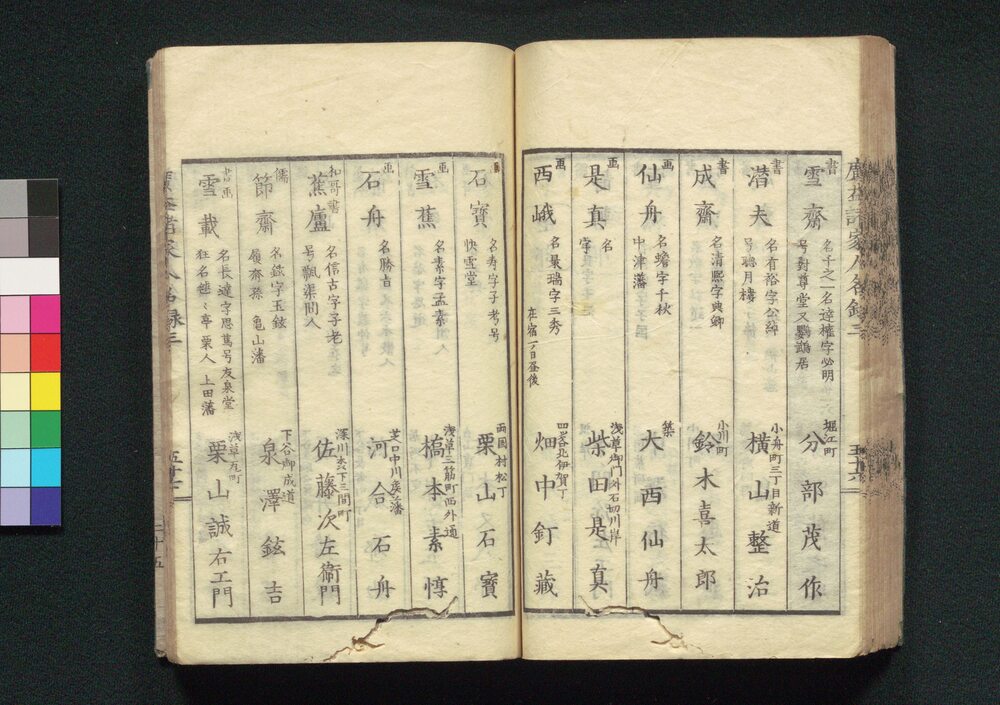 書
雪齋
名千之一名達権字必明
号對尊堂又鸚鵡居
堀江町
分部茂作
書
潜夫
名有裕字公綽
号聴月樓
小舟町三丁目新道
横山整治
書
成齋
名清熙字典卿
小川町
鈴木喜太郎
画
仙舟
名蟾字千秋
中津藩
築
大西仙舟
画
是真
名
字
浅草御門外石切川岸
柴田是真
画
西峨
名最瑞字三秀
在宿一ノ日昼後
四谷北伊賀丁
畑中釘藏
画
石寳
名寿字子考号
快雪堂
両国村松丁
栗山石寳
画
雪蕉
名素字孟素
浅草三筋町西外通
橋本素惇
画
石舟
名勝吉
芝口中川侯之藩
河合石舟
和哥書
蕉廬
名信古字子老
号瓢渠間人
深川木下三間町
佐藤次左衛門
儒
節齋
名鉉字玉鉉
履齋孫 亀山藩
下谷御成道
泉澤鉉吉
書画
雪載
名長達字思篤号友泉堂
狂名 亭栗人 上田藩
浅草瓦町
栗山誠右エ門
廣益諸家人名録三
五十六
廣益諸家人名録三